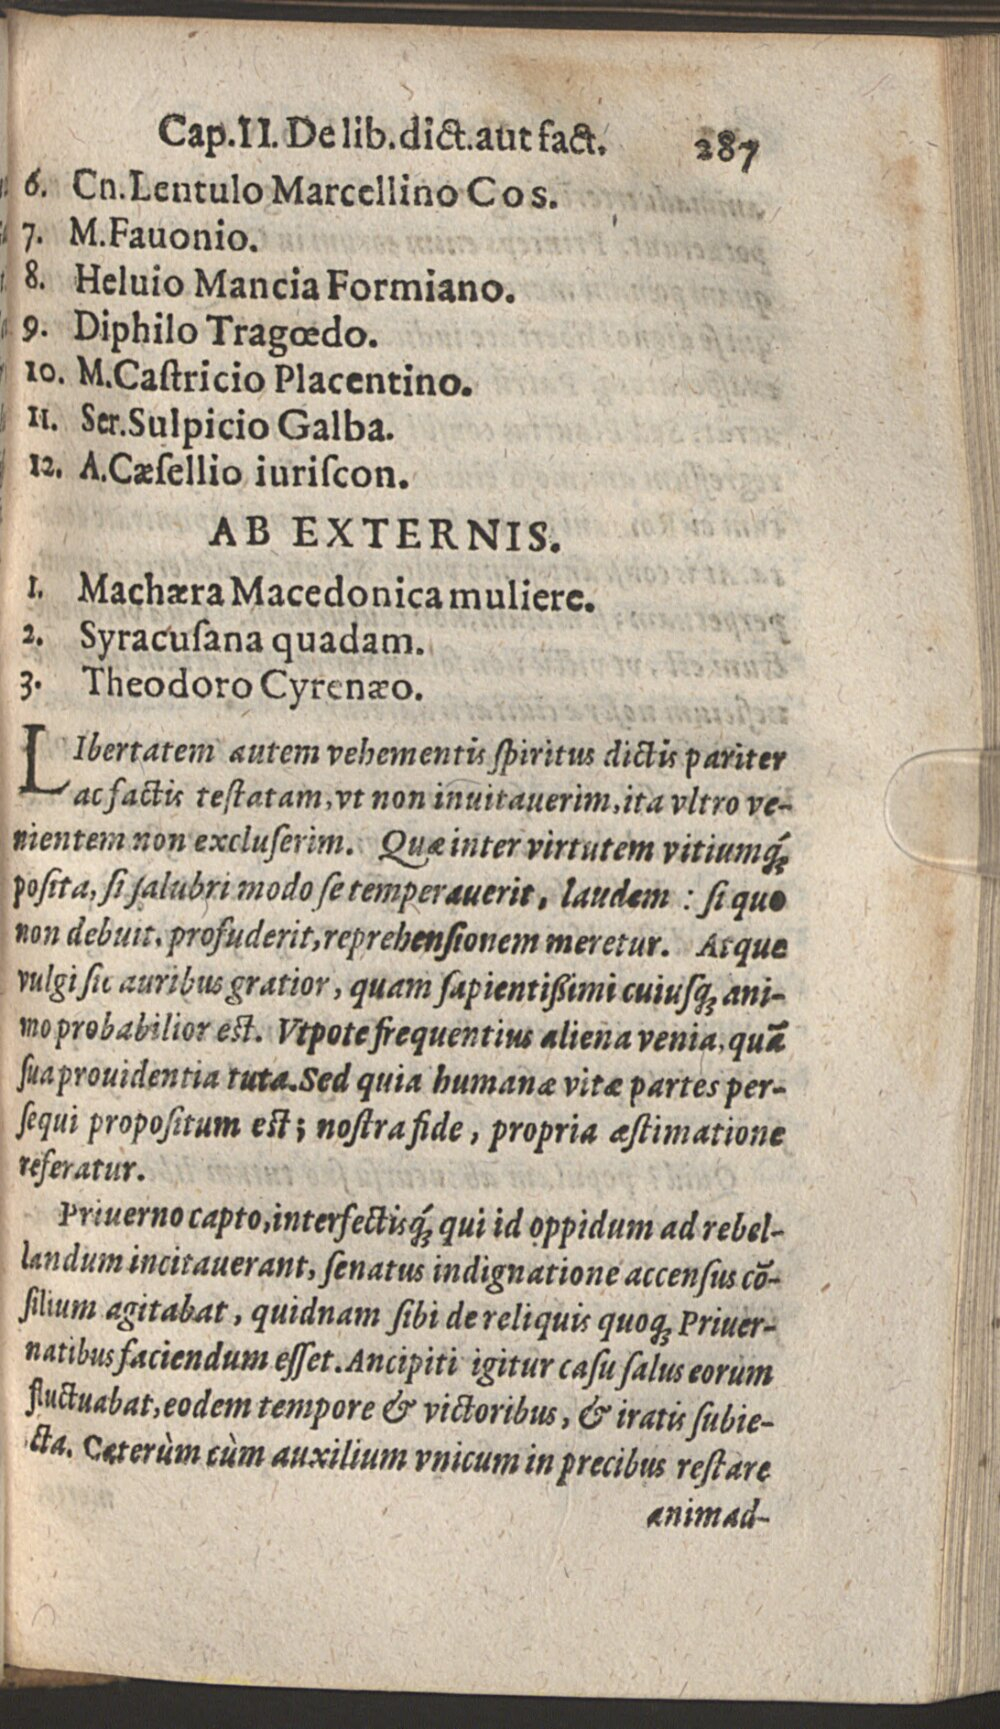 Cap.II. De lib. dict. aut fact. 287
6. Cn. Lentulo Marcellino Cos.
7. M. Fauonio.
8. Heluio Mancia Formiano.
9. Diphilo Tragœdo.
10. M. Caſtricio Placentino.
11. Ser. Sulpicio Galba.
12. A. Cæſellio iuriſcon.
AB EXTERNIS.
1. Machæra Macedonica muliere.
2. Syracuſana quadam.
3. Theodoro Cyrenæo.
LIbertatem autem vehementis ſpiritus dictis pariter
ac factis teſtatam, vt non inuitauerim, ita vltro ve-
nientem non excluſerim. Quæ inter virtutem vitiumq́;
poſita, ſi ſalubri modo ſe temperauerit, laudem: ſi quo
non debuit, profuderit, reprehenſionem meretur. Atque
vulgi ſic auribus gratior, quam ſapientißimi cuiuſq; ani-
mo probabilior eſt. Vtpote frequentius aliena venia, quā
ſua prouidentia tuta. Sed quia humanæ vitæ partes per-
ſequi propoſitum eſt; noſtra fide, propria æſtimatione
referatur.
Priuerno capto, interfectisq́; qui id oppidum ad rebel-
landum incitauerant, ſenatus indignatione accenſus cō-
ſilium agitabat, quidnam ſibi de reliquis quoq; Priuer-
natibus faciendum eſſet. Ancipiti igitur caſu ſalus eorum
fluctuabat, eodem tempore & victoribus, & iratis ſubie-
cta. Cæterùm cùm auxilium vnicum in precibus reſtare
animad-